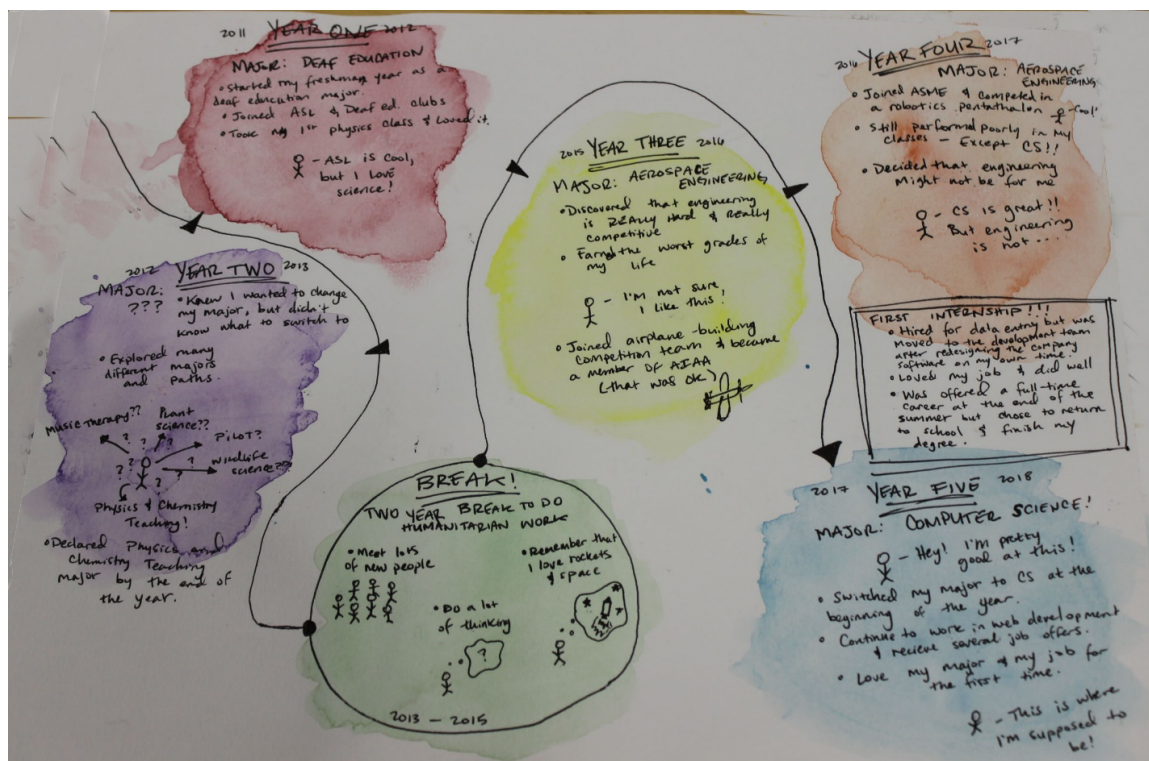 2011 YEAR ONE 2012
MAJOR: DEAF EDUCATION
• Started my freshman year as a
deaf education major.
• Joined ASL & Deaf ed. clubs
• Took my 1st physics class & Loved it.
- ASL is cool,
but I love
science!
2012 YEAR TWO 2013
MAJOR:
???
• Knew I wanted to change
my major, but didn't
know what to switch to
• Explored many
different majors
and paths.
Music therapy??
Plant
science??
? ? ?
PILOT?
?? ? ?
Wildlife
science??
Physics & Chemistry
Teaching!
• Declared Physics and
Chemistry Teaching
major by the end of
the year.
BREAK!
TWO YEAR BREAK TO DO
HUMANITARIAN WORK
• Meet lots
of new people
• Do a lot
of thinking
?
• Remember that
I love rockets
& space
2013 - 2015
2015 YEAR THREE 2016
MAJOR: AEROSPACE
ENGINEERING
• Discovered that engineering
is REALLY Hard & Really
competitive
• Earned the worst grades of
my life
- I'm not sure
I like this!
• Joined airplane-building
competition team & became
a member of AIAA
(that was ok)
2016 YEAR FOUR 2017
MAJOR: AEROSPACE
ENGINEERING
• Joined ASME & competed in
a robotics pentathalon - Cool!
• Still performed poorly in my
classes - Except CS!!
• Decided that engineering
Might not be for me
- CS is great!!
But engineering
is not....
FIRST INTERNSHIP!!!
• Hired for data entry but was
moved to the development team
after redesigning the company
software on my own time.
• Loved my job & did well
• Was offered a full-time
career at the end of the
summer but chose to return
to school & finish my
degree.
2017 YEAR FIVE 2018
MAJOR: COMPUTER SCIENCE!
- Hey! I'm pretty
good at this!
• Switched my major to CS at the
beginning of the year.
• Continue to work in web development
& recieve several job offers.
• Love my major & my job for
the first time.
- This is where
I'm supposed to
be!